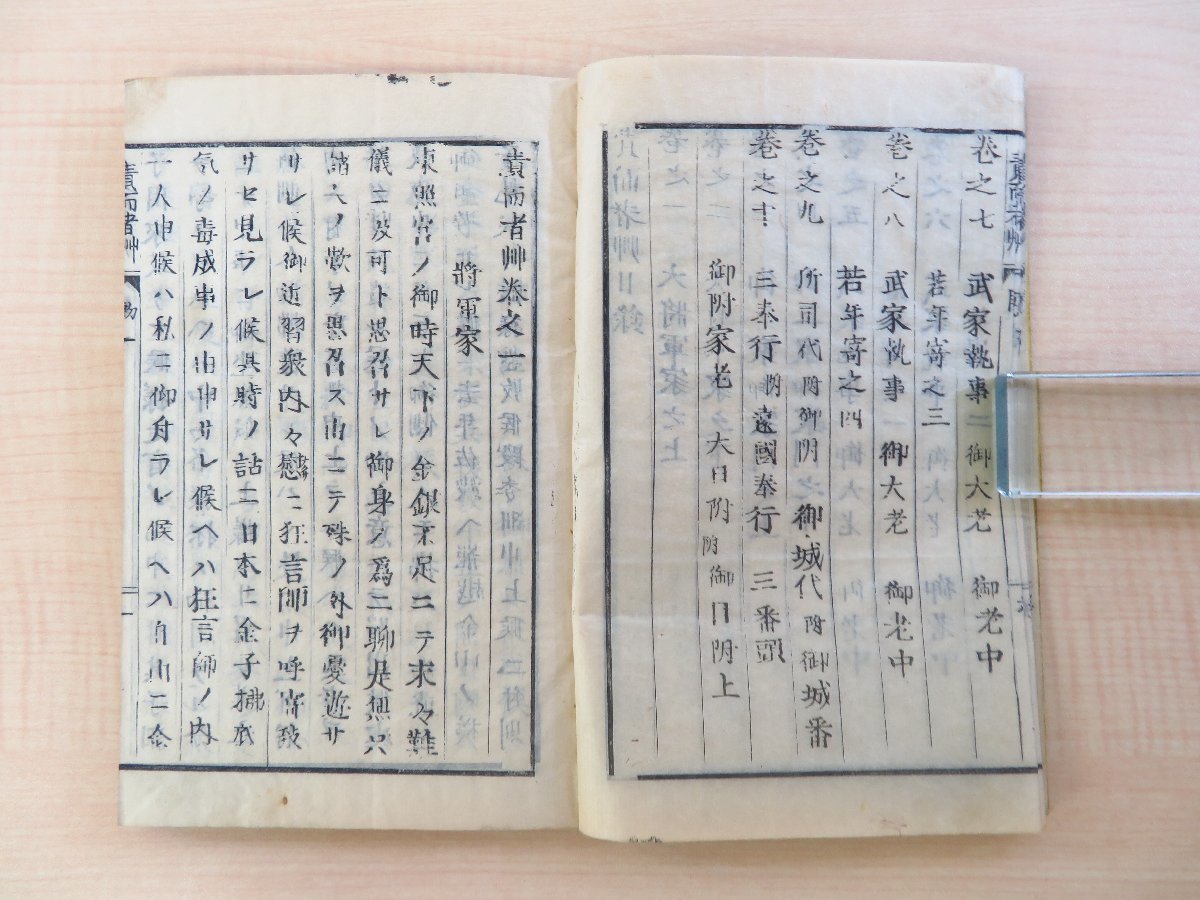 卷之七 武家執事二 御大老 御老中
若年寄之三
卷之八 武家執事一 御大老 御老中
若年寄之四
卷之九 所司代 附御附 御城代 附御城番
卷之十 三奉行 附遠國奉行 三番頭
御附家老 大目附 附御目附上
責而者艸卷之一
將軍家
東照宮ノ御時天下ノ金銀不足ニテ末々難
儀ニ及可ト思召サレ御身ノ爲ニ聊是無只
諸人ノ歎ヲ思召ス由ニテ殊ノ外御憂遊サ
リレ候御近習衆内々慰ニ狂言師ヲ呼寄致
サセ見ラレ候其時ノ話ニ日本ニ金子拂底
気ノ毒成事ノ由申サレ候ヘハ狂言師ノ内
一人申候ハ私ニ仰付ラレ候ヘハ自由ニ金
責而者艸